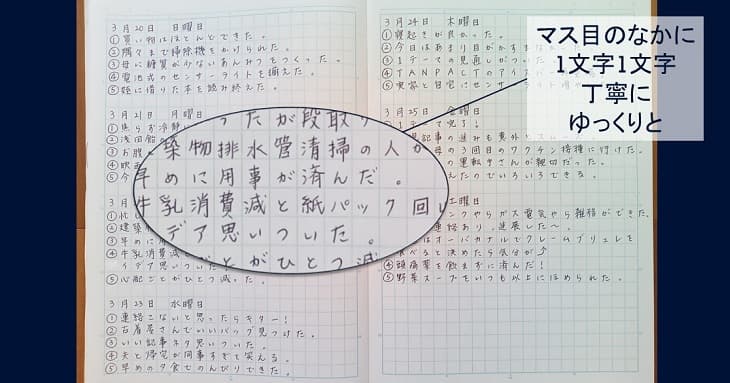 3月20日 日曜日
①買い物はほとんどできた。
②隅々まで掃除機をかけられた。
③母に糖質が少ないあんみつをつくった。
④電池式のセンサーライトを揃えた。
⑤姪に借りた本を読み終えた。
3月21日 月曜日
①焦らず冷静
②浅田飴
③お腹
④映画
⑤今
3月
①忙し
②建築
③早めに
④牛乳消費減
イデア思いつ
⑤心配ごとがひとつ減った。
3月23日 水曜日
①連絡こないと思ったらキター!
②古着屋さんでいいバッグ見つけた。
③いい記事ネタ思いついた。
④夫と帰宅が同時すぎて笑える。
⑤早めの夕食でのんびりできた。
ったが段取り
築物排水管清掃の人が
早めに用事が済んだ。
牛乳消費減と紙パック回
デア思いついた。
ごとがひとつ減
3月24日 木曜日
①寝起きが良かった。
②今日はあまり目がかす
③1テーマの見直しがついた
④TANPACTのアイス
⑤実家と自宅にセンサーライト
3月25日 金曜日
母の3回目のワクチン接種に行けた。
の運転手さんが親切だった。
えたのでいろいろできる。
土曜日
ンクやらガス電気やら雑務ができた。
連絡あり、進展した〜。
はオーバカナルでクレームブリュレを
食べると決めたら気分が↑
④頭痛薬を飲まずに済んだ!
⑤野菜スープをいつも以上にほめられた。
マス目のなかに
1文字1文字
丁寧に
ゆっくりと